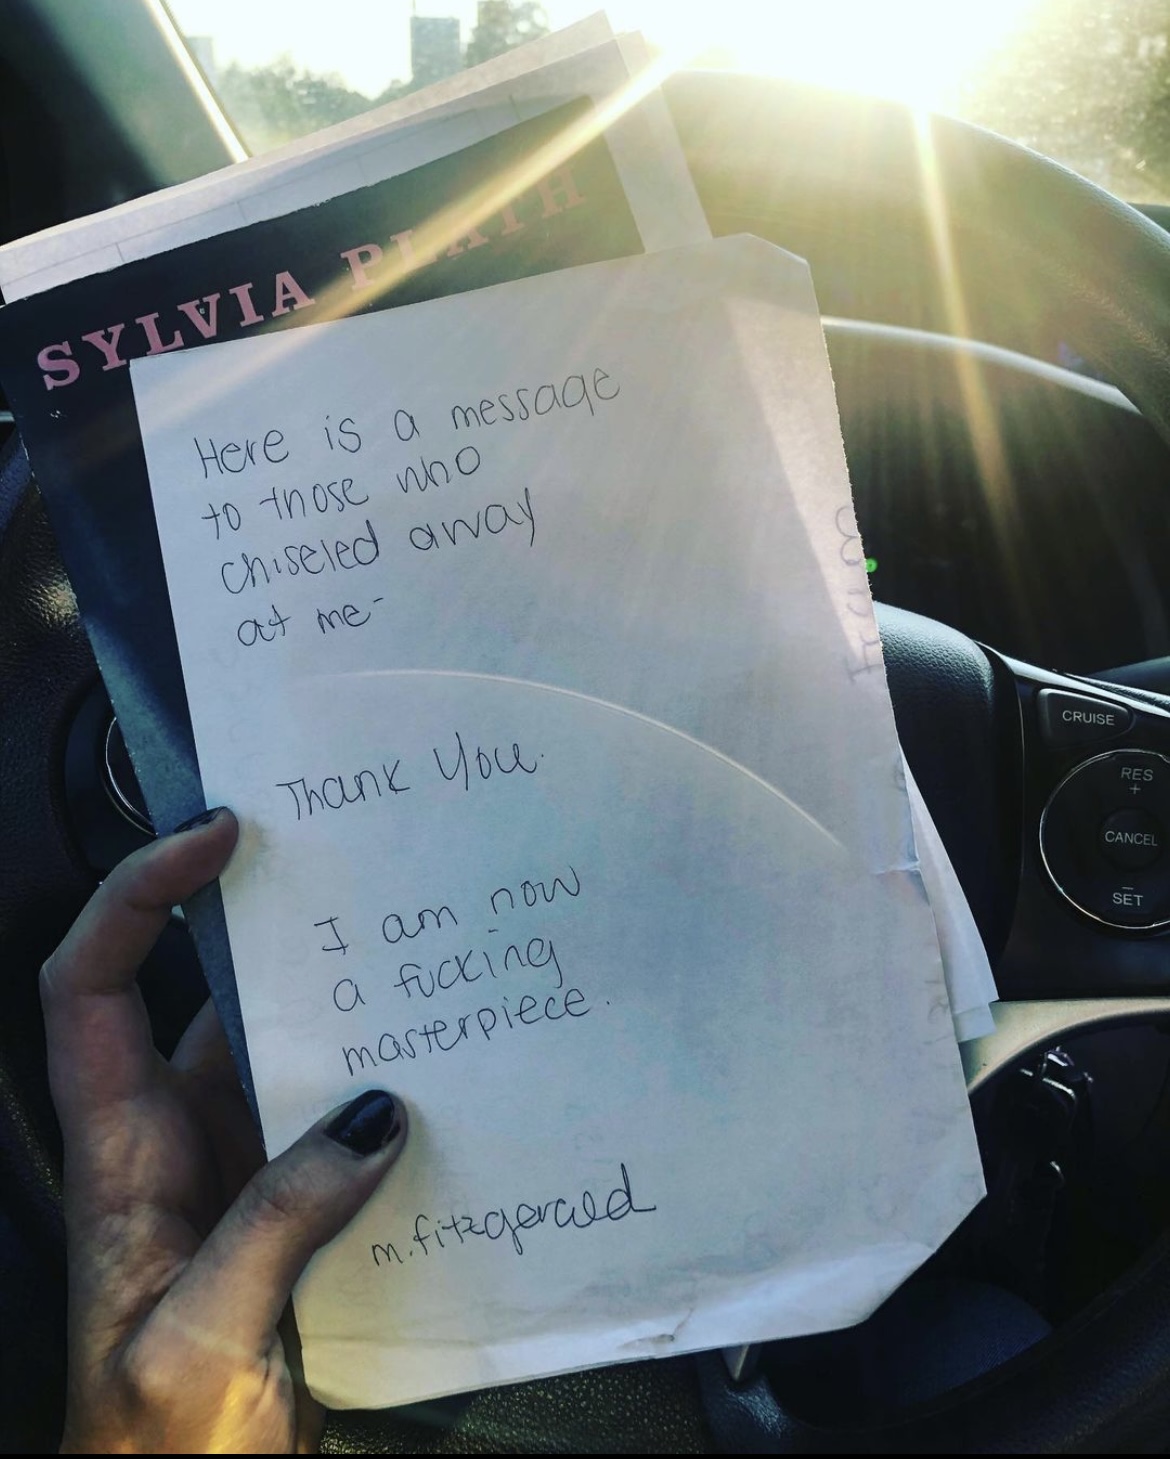 SYLVIA PLATH
Here is a message
to those who
chiseled away
at me-
Thank You.
I am now
a fucking
masterpiece.
m.fitzgerald
CRUISE
RES
+
CANCEL
–
SET